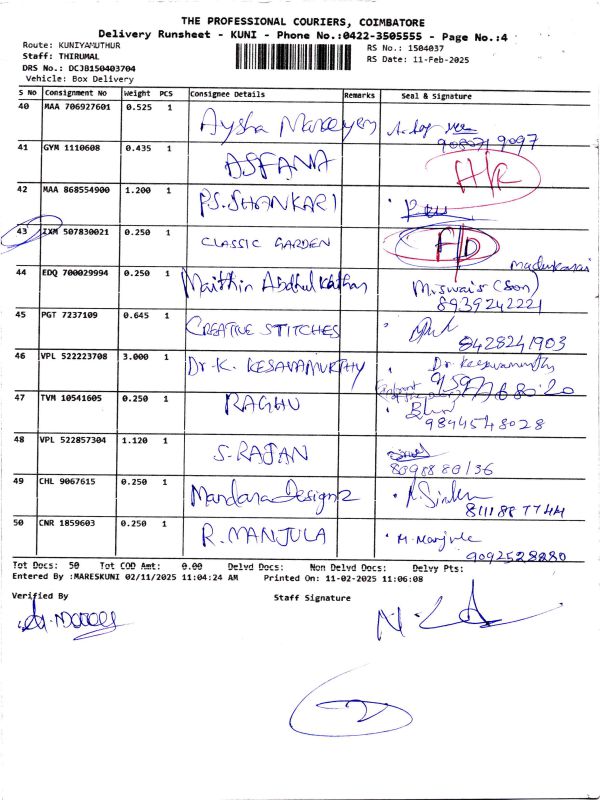 THE PROFESSIONAL COURIERS, COIMBATORE
Delivery Runsheet - KUNI - Phone No.:0422-3505555 - Page No.:4
Route: KUNIYAMUTHUR
RS No.: 1504037
Staff: THIRUMAL
RS Date: 11-Feb-2025
DRS No.: DCJB150403704
Vehicle: Box Delivery
S No Consignment No Weight PCS Consignee Details Remarks Seal & Signature
40 MAA 706927601 0.525 1
Aysha Mareeyam
9080719097
41 GYM 1110608 0.435 1
ASFANA H/R
42 MAA 868554900 1.200 1
P.S. SHANKARI
43 IXM 507830021 0.250 1
CLASSIC GARDEN F/D
44 EDQ 700029994 0.250 1
Maithin Abdhul M.swais (Son)
8939242221
45 PGT 7237109 0.645 1
CREATIVE STITCHES
8428241903
46 VPL 522223708 3.000 1
Dr. K. KESAVAMURTHY
47 TVM 10541605 0.250 1
RAGHU
9894548028
48 VPL 522857304 1.120 1
S-RAJAN
49 CHL 9067615 0.250 1
Mandara Designz
8111887744
50 CNR 1859603 0.250 1
R. MANJULA
9092528880
Tot Docs: 50 Tot COD Amt: 0.00 Delvd Docs: Non Delvd Docs: Delvy Pts:
Entered By :MARESKUNI 02/11/2025 11:04:24 AM Printed On: 11-02-2025 11:06:08
Verified By
Staff Signature